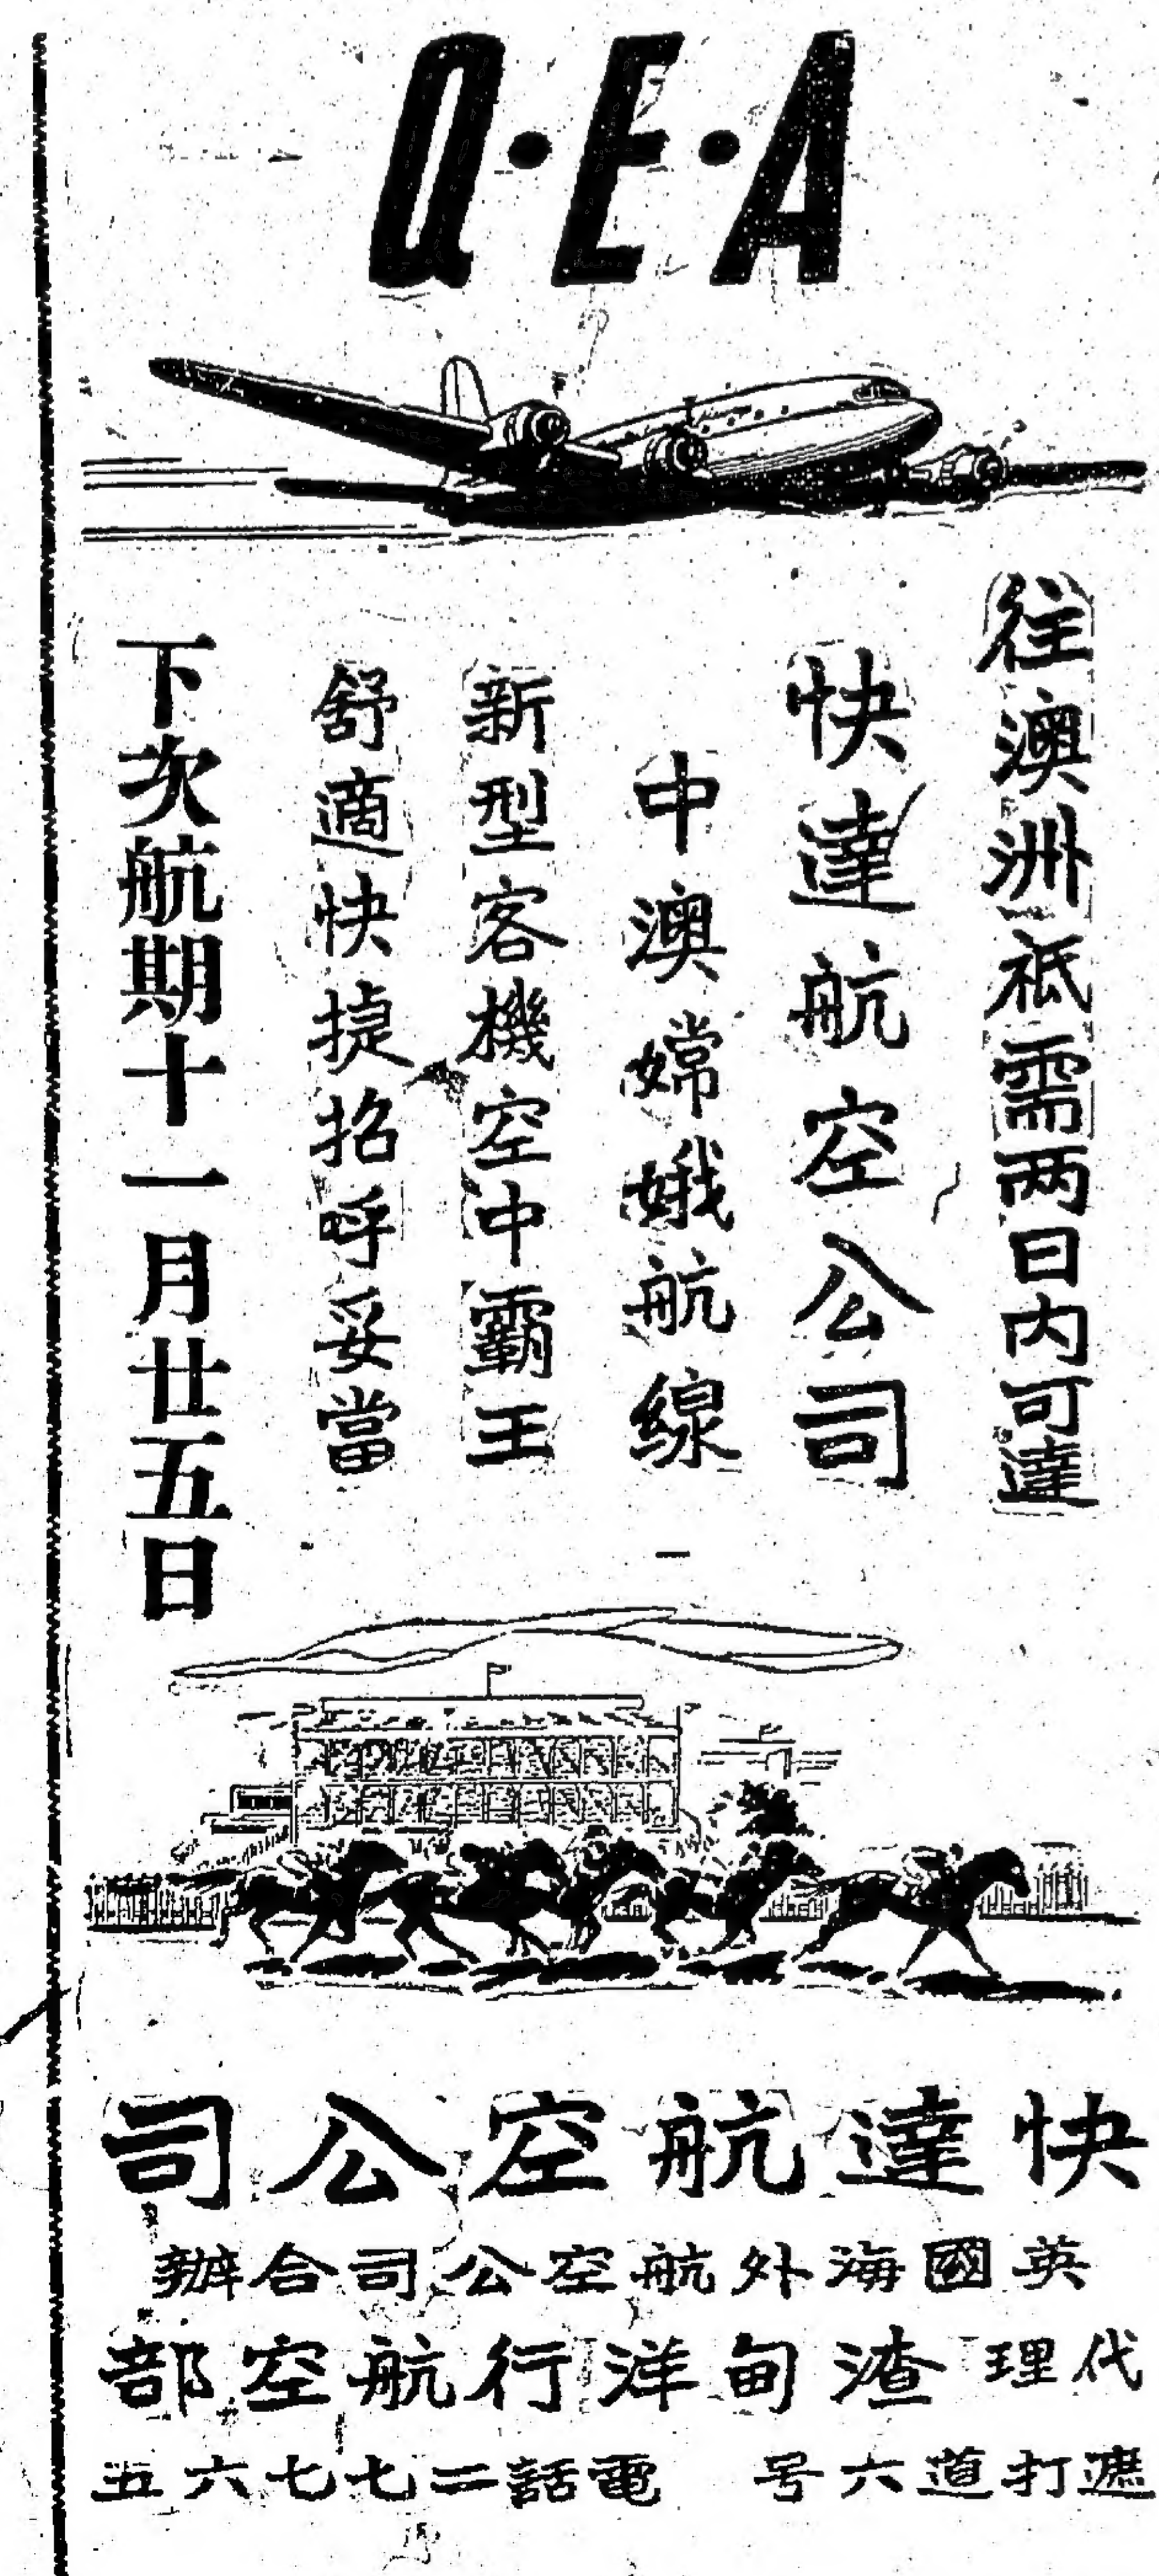 Q·E·A
往澳洲祗需两日内可達
快達航空公司
中澳嫦娥航線
新型客機空中霸王
舒適快捷招呼妥當
下次航期十一月廿五日
快達航空公司
英國海外航空公司合辦
代理 渣甸洋行航空部
遮打道六号 電話二七七六五